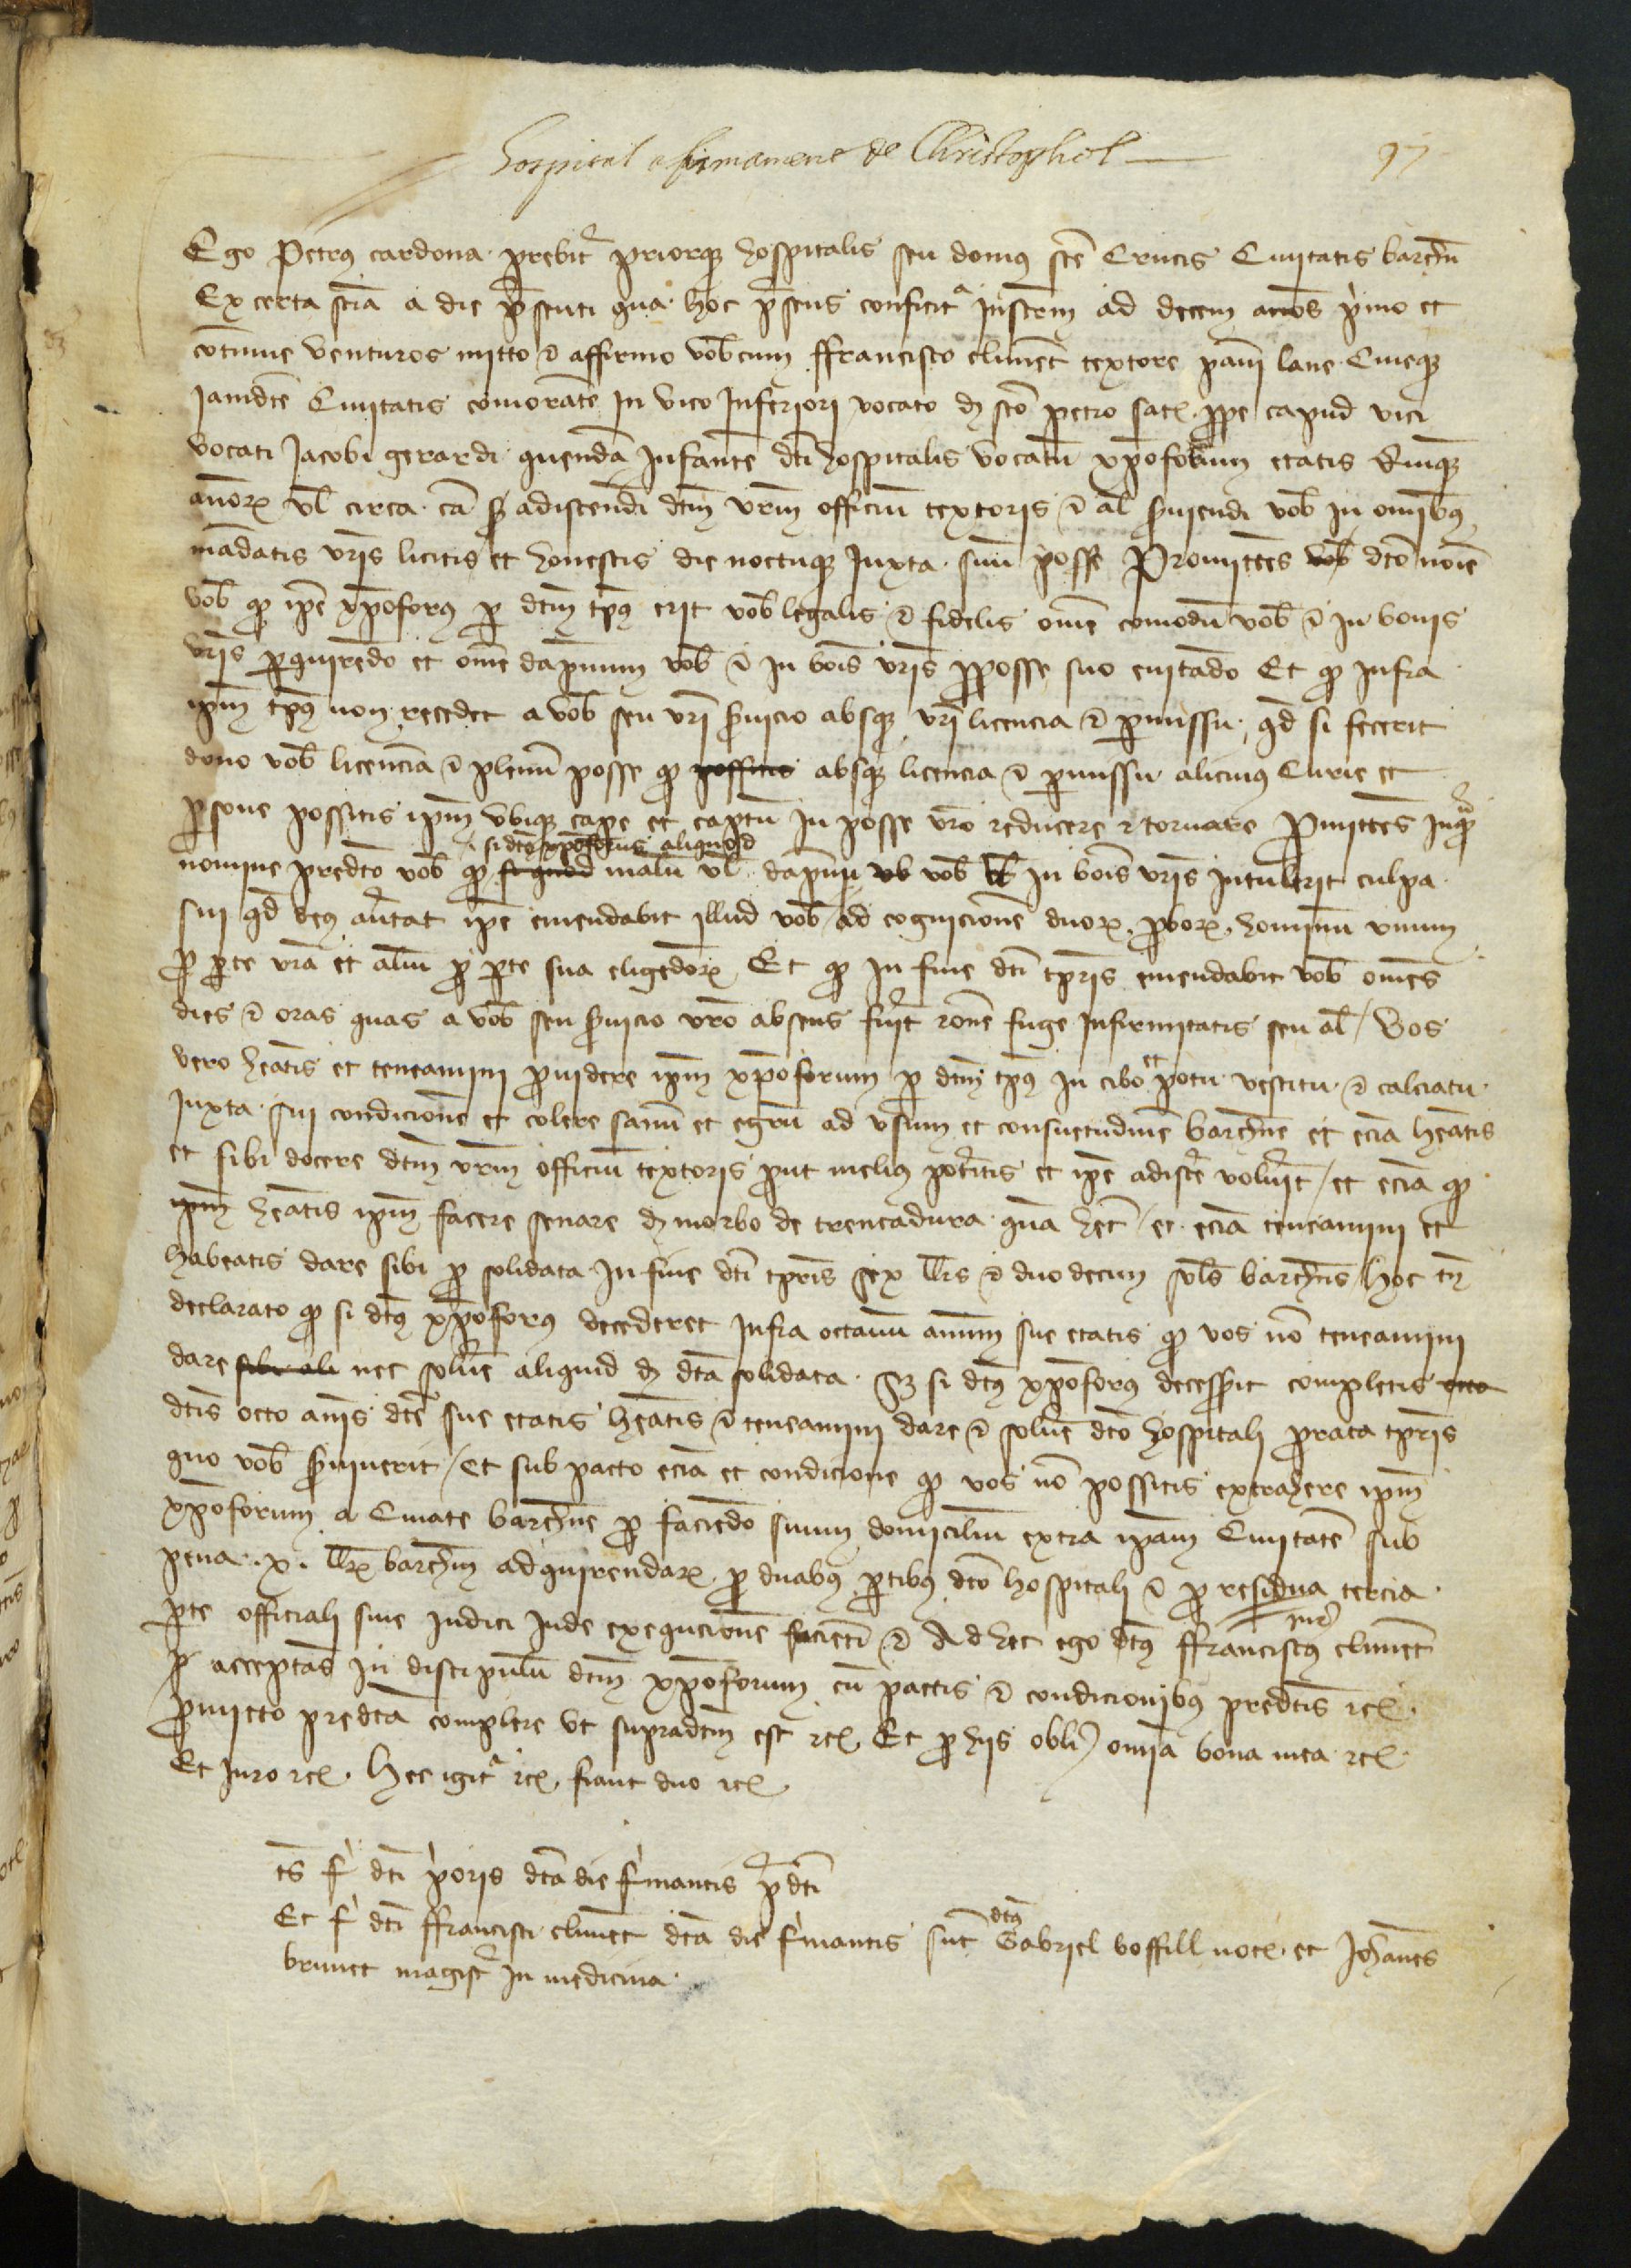 Hospital afirmament de Christophol
97
Ego Petrus cardona prebitr priorque hospitalis seu domus sce Crucis Civitatis barchn
Ex certa scia a die psenti qua hoc psens conficitr Instrm ad decem annos primo et
cotinue venturos mitto et affirmo vobcum ffrancisco climet textore pani lane Civeque
Jamdte Civitatis comorate In vico Inferiori vocato de sco petro prope capud vici
vocati Jacobi gerardi quenda Infante dti hospitalis vocatu xpoforum etatis quinque
annor vl circa ca adiscendi dtm vrm officiu textoris et al serviendi vob in omibus
madatis vris licitis et honestis die noctuque Juxta suu posse Promittes vob dto noie
vob quod ipe xpoforus per dtm tpus erit vob legalis et fidelis ome comodu vob et in bonis
vris perquiredo et ome dapnum vob et in bois vris pposse suo evitado Et quod infra
ipm tpus non recedet a vob seu vri servicio absque vri licencia et permissu qd si fecerit
dono vob licencia et plenu posse quod possitis absque licencia et permissu alicuius Curie et
persone possitis ipm ubique cape et captu in posse vro reducere et tornare Pmittes
si dtus xpoforus aliquod
nomine predto vob quod malu vl dapnu vob vob vl in bois vris intulerit culpa
sui qd deus avertat ipe emendabit illud vob ad cognicione duor pbor hominu unum
pro pte vra et aliu pro pte sua eligedor Et quod in fine dti tpris emendabit vob omes
dies et oras quas a vob seu servicio vro absens fuit rone fuge Infirmitatis seu al / Vos
et
vero heatis et teneamini providere ipm xpoforum per dtm tpus in cibo potu vestitu et calciatu
Juxta sui condicione et colere sanu et egru ad usum et consuetudine barchne et ecia heatis
et sibi docere dtm vrm officiu textoris prout melius poteritis et ipe adiscere voluit / et ecia quod
ipm heatis ipm facere senare de morbo de trencadura qua het / et ecia teneamini et
habeatis dare sibi pro solidata in fine dti tpris sex llrs et duodecim sols barchns / hoc tn
declarato quod si dtus xpoforus decederet Infra octavu annum sue etatis quod vos no teneamini
dare sibi ali nec solve aliquid de dta solidata Sz si dtus xpoforus decesserit completis octo
dtis octo anis dte sue etatis heatis et teneamini dare et solve dto hospitali prata tpris
quo vob servierit / Et sub pacto ecia et condicione quod vos no possitis extrahere ipm
xpoforum a Civate barchne pro faciedo suum domiciliu extra ipam Civitate sub
pena .x. llr barchn adquirendar pro duabus ptibus dto hospitali et pro residua tercia
pte officiali sive judici inde exequcione facieti et Ad hec ego dtus ffranciscus climet
acceptas in discipulu dtm xpoforum cu pactis et condicionibus predtis etc
pmitto predta complere ut supradtm est etc Et pro hiis obli omia bona mea etc
Et Juro etc Hec igitr etc fiant duo etc
ts fi dti prioris dta die firmantis pdti
dta
Et fi dti ffrancisci climet dta die firmantis sut Gabriel boffill not et Johanes
brunet magistr in medicina